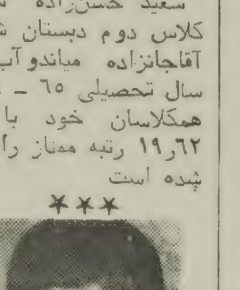 سعید حسن‌زاده
کلاس دوم دبستان
آقاجانزاده میاندوآب
سال تحصیلی ٦٥ ـ
همکلاسان خود با
١٩٫٦٢ رتبه ممتاز را
شده است
★★★